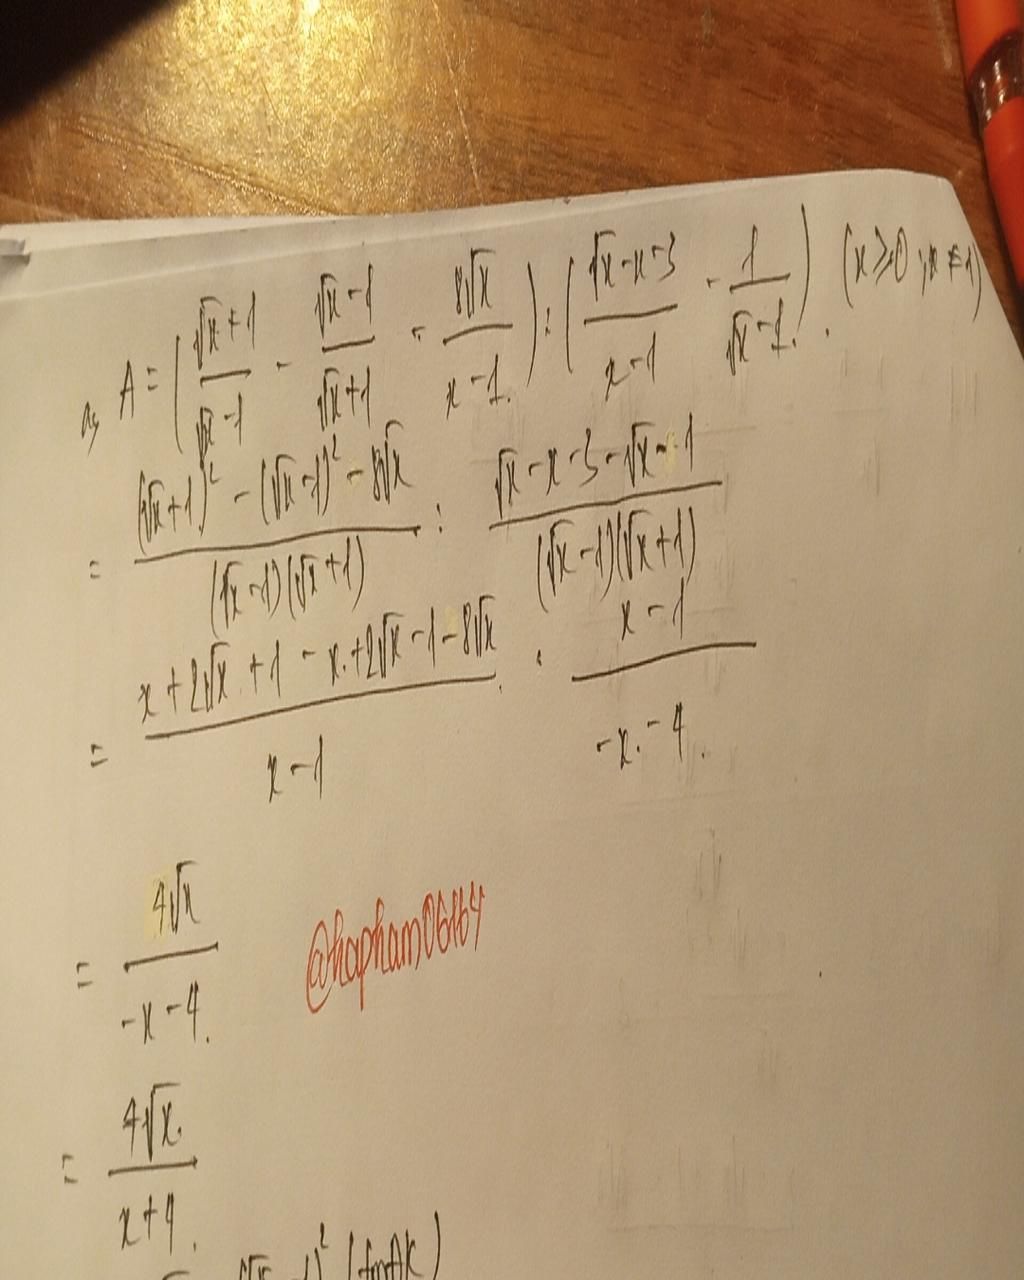 a, A = ( (√x+1)/(√x-1) - (√x-1)/(√x+1) - 8√x/(x-1) ) : ( (√x-x-3)/(x-1) - 1/(√x-1) ) . (x ≥ 0 ; x ≠ 1)
= ((√x+1)² - (√x-1)² - 8√x)/((√x-1)(√x+1)) : (√x-x-3-√x-1)/((√x-1)(√x+1))
= (x+2√x+1-x+2√x-1-8√x)/(x-1) . (x-1)/(-x-4)
= 4√x/(-x-4)
@hapham06164
= 4√x/(x+4)